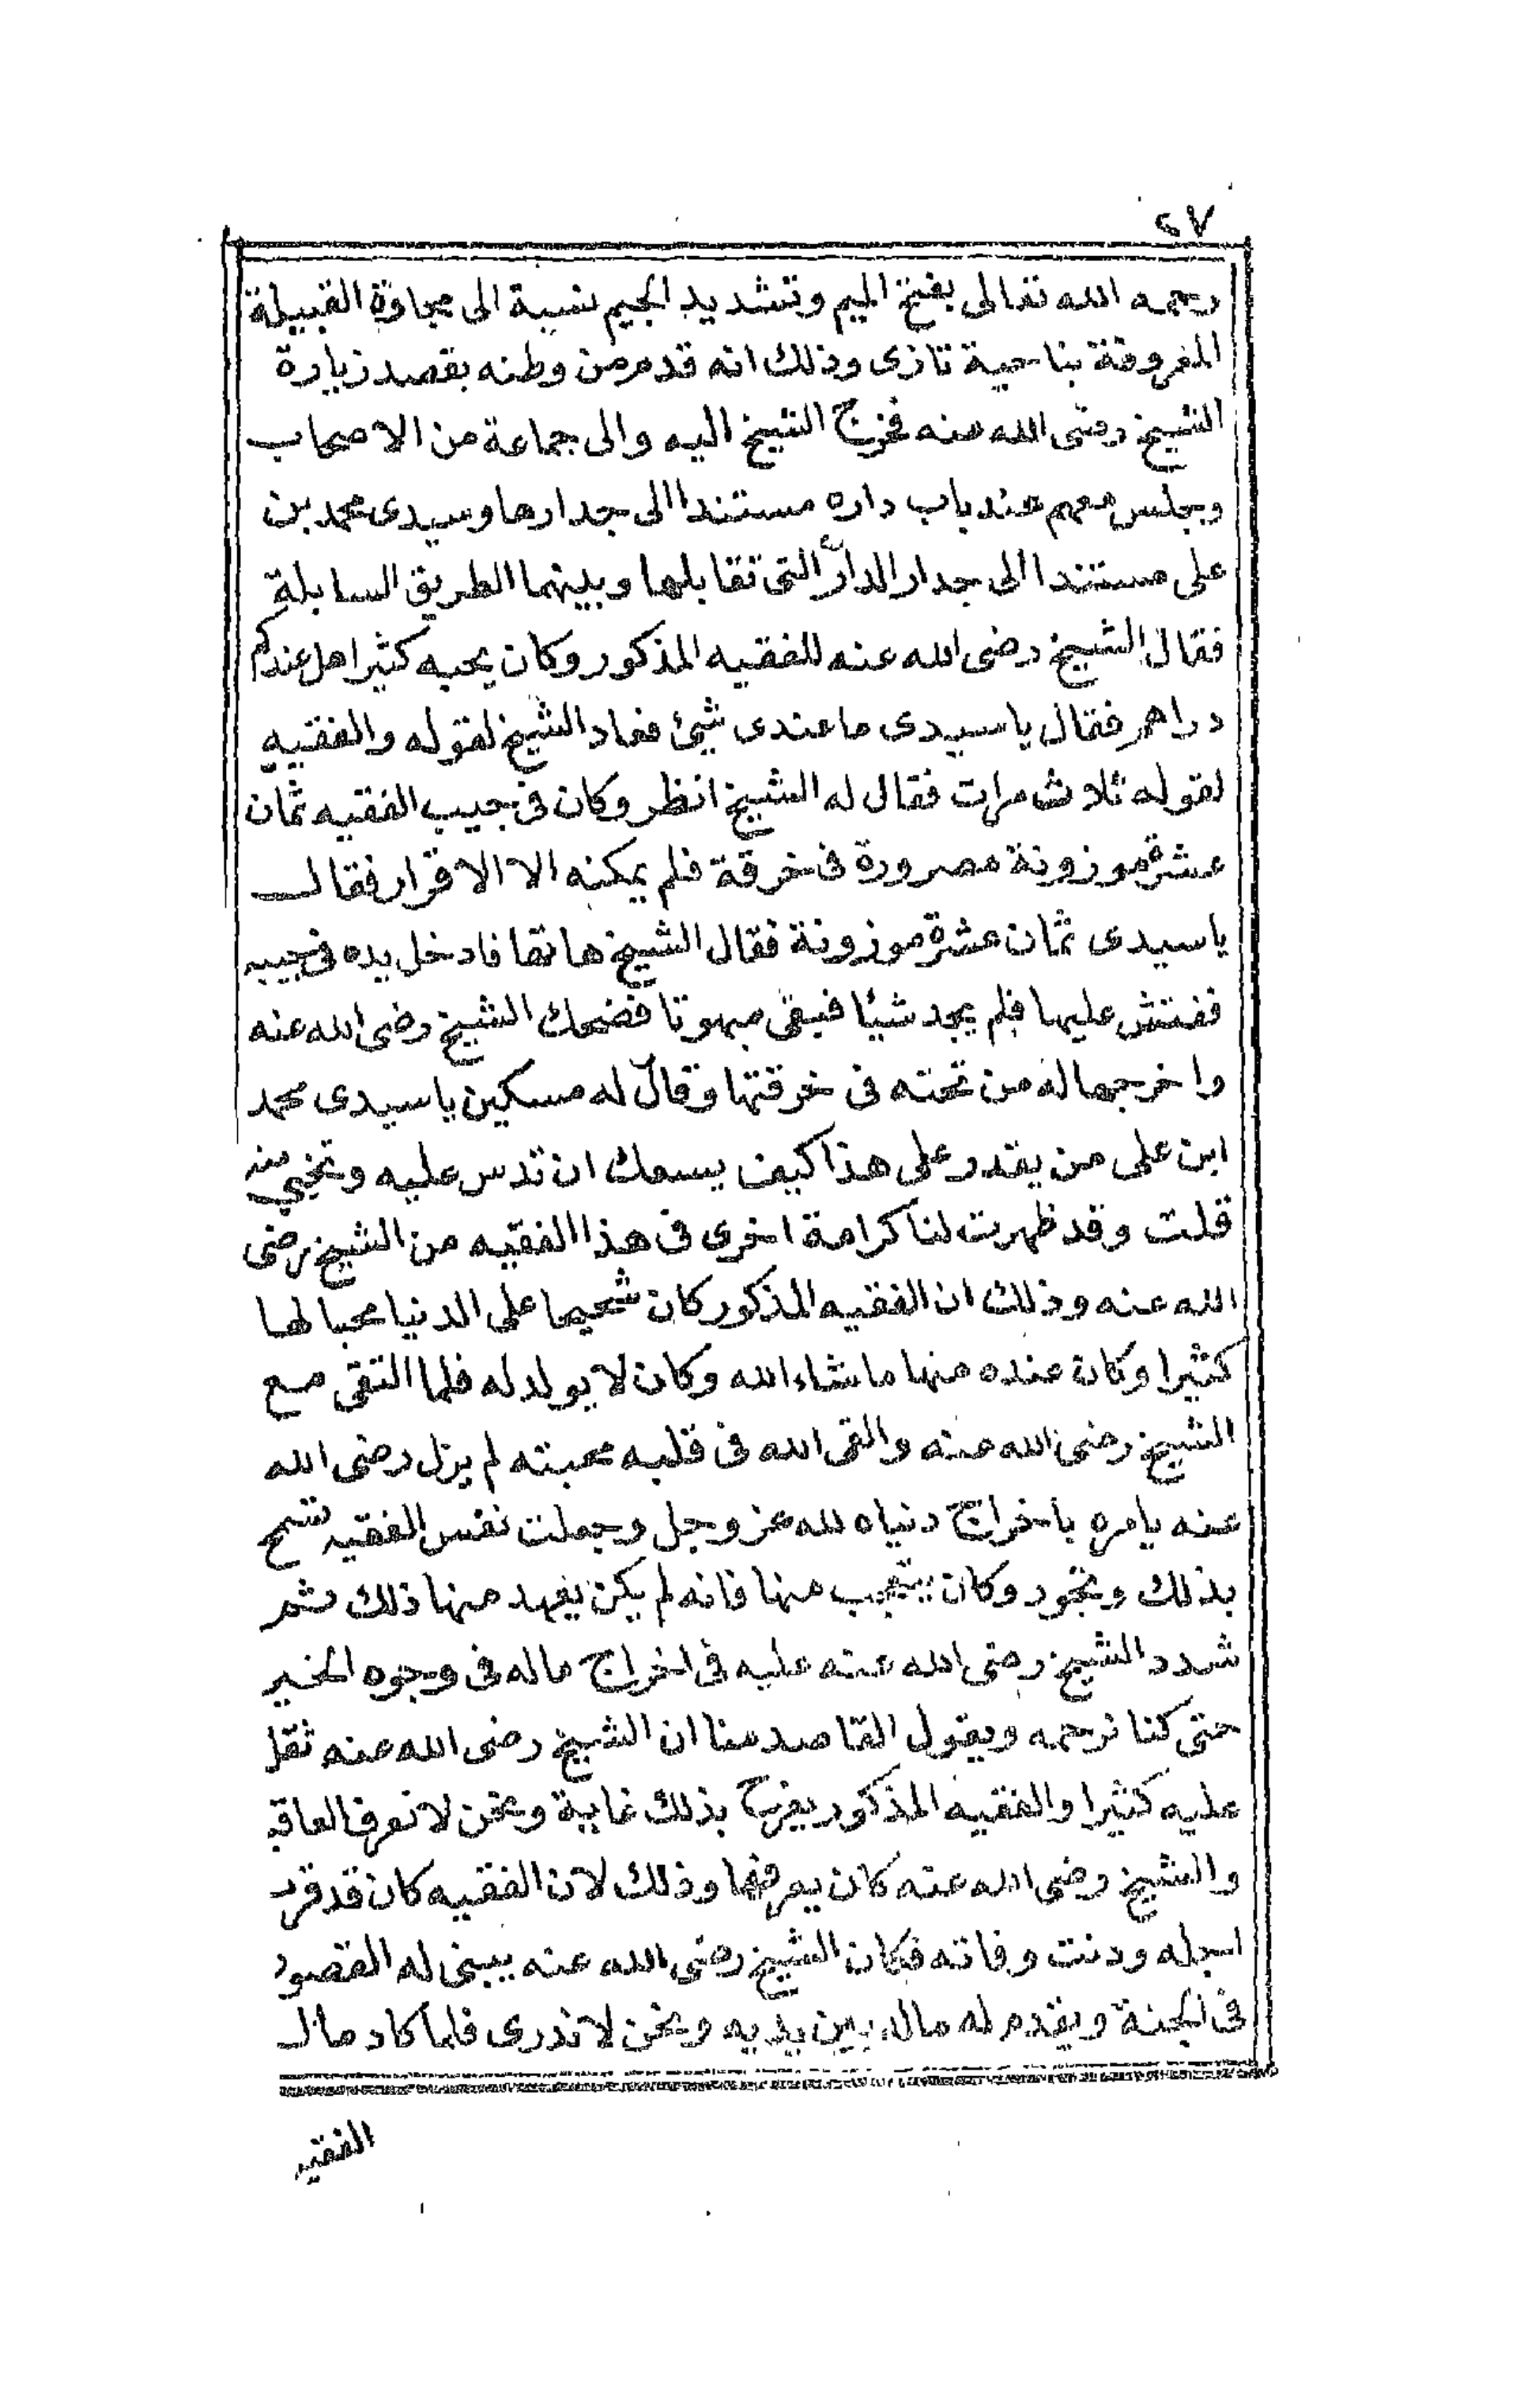 ٢٧
رحمه الله تعالى بفتح الميم وتشديد الجيم نسبة الى مجاوة القبيلة
المعروفة بناحية تازى وذلك انه قدم من وطنه بقصد زيارة
الشيخ رضى الله عنه فخرج الشيخ اليه والى جماعة من الاصحاب
وجلس معهم عند باب داره مستندا الى جدارها وسيدى محمد بن
على مستندا الى جدار الدار التى تقابلها وبينهما الطريق السابلة
فقال الشيخ رضى الله عنه للفقيه المذكور وكان يحبه كثيرا هل عندكم
دراهم فقال يا سيدى ما عندى شيئ فعاد الشيخ لقوله والفقيه
لقوله ثلاث مرات فقال له الشيخ انظر وكان فى جيب الفقيه ثمان
عشرة موزونة مصرورة فى خرقة فلم يمكنه الا الاقرار فقال
يا سيدى ثمان عشرة موزونة فقال الشيخ هاتها فادخل يده فى جيبه
ففتش عليها فلم يجد شيئا فبقى مبهوتا فضحك الشيخ رضى الله عنه
واخرجها له من تحته فى خرقتها وقال له مسكين يا سيدى محمد
ابن على من يقدر على هذا كيف يسعك ان تدس عليه وتخبي منه
قلت وقد ظهرت لنا كرامة اخرى فى هذا الفقيه من الشيخ رضى
الله عنه وذلك ان الفقيه المذكور كان شحيحا على الدنيا محبا لها
كثيرا وكان عنده منها ما شاء الله وكان لا يولد له فلما التقى مع
الشيخ رضى الله عنه والقى الله فى قلبه محبته لم يزل رضى الله
عنه يامره باخراج دنياه لله عز وجل وجعلت نفس الفقيه تسمح
بذلك وتجود وكان يتعجب منها فانه لم يكن يعهد منها ذلك ثم
شدد الشيخ رضى الله عنه عليه فى اخراج ماله فى وجوه الخير
حتى كنا نرحمه ويقول القاصد منا ان الشيخ رضى الله عنه ثقل
عليه كثيرا والفقيه المذكور يفرح بذلك غاية ونحن لا نعرف العاقبة
والشيخ رضى الله عنه كان يعرفها وذلك لان الفقيه كان قد قرب
اجله ودنت وفاته فكان الشيخ رضى الله عنه يبنى له القصور
فى الجنة ويقدم له ماله بين يديه ونحن لا ندرى فلما كاد مال
الفقيه